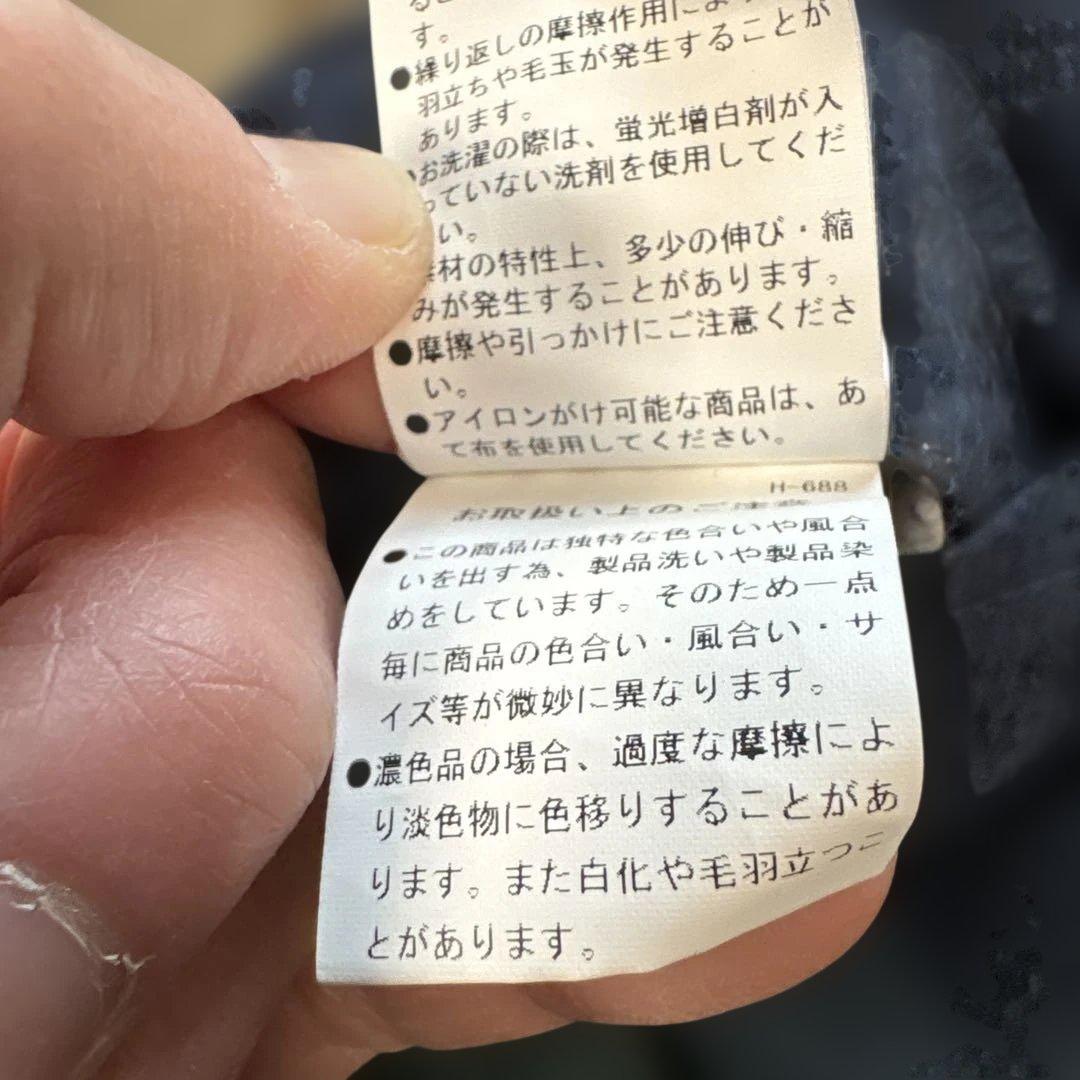 す。
●繰り返しの摩擦作用によ
羽立ちや毛玉が発生することが
あります。
お洗濯の際は、蛍光増白剤が入
っていない洗剤を使用してくだ
い。
材の特性上、多少の伸び・縮
みが発生することがあります。
●摩擦や引っかけにご注意くださ
い。
●アイロンがけ可能な商品は、あ
て布を使用してください。
H-688
お取扱い上のご注意
●この商品は独特な色合いや風合
いを出す為、製品洗いや製品染
めをしています。そのため一点
毎に商品の色合い・風合い・サ
イズ等が微妙に異なります。
●濃色品の場合、過度な摩擦によ
り淡色物に色移りすることがあ
ります。また白化や毛羽立つこ
とがあります。